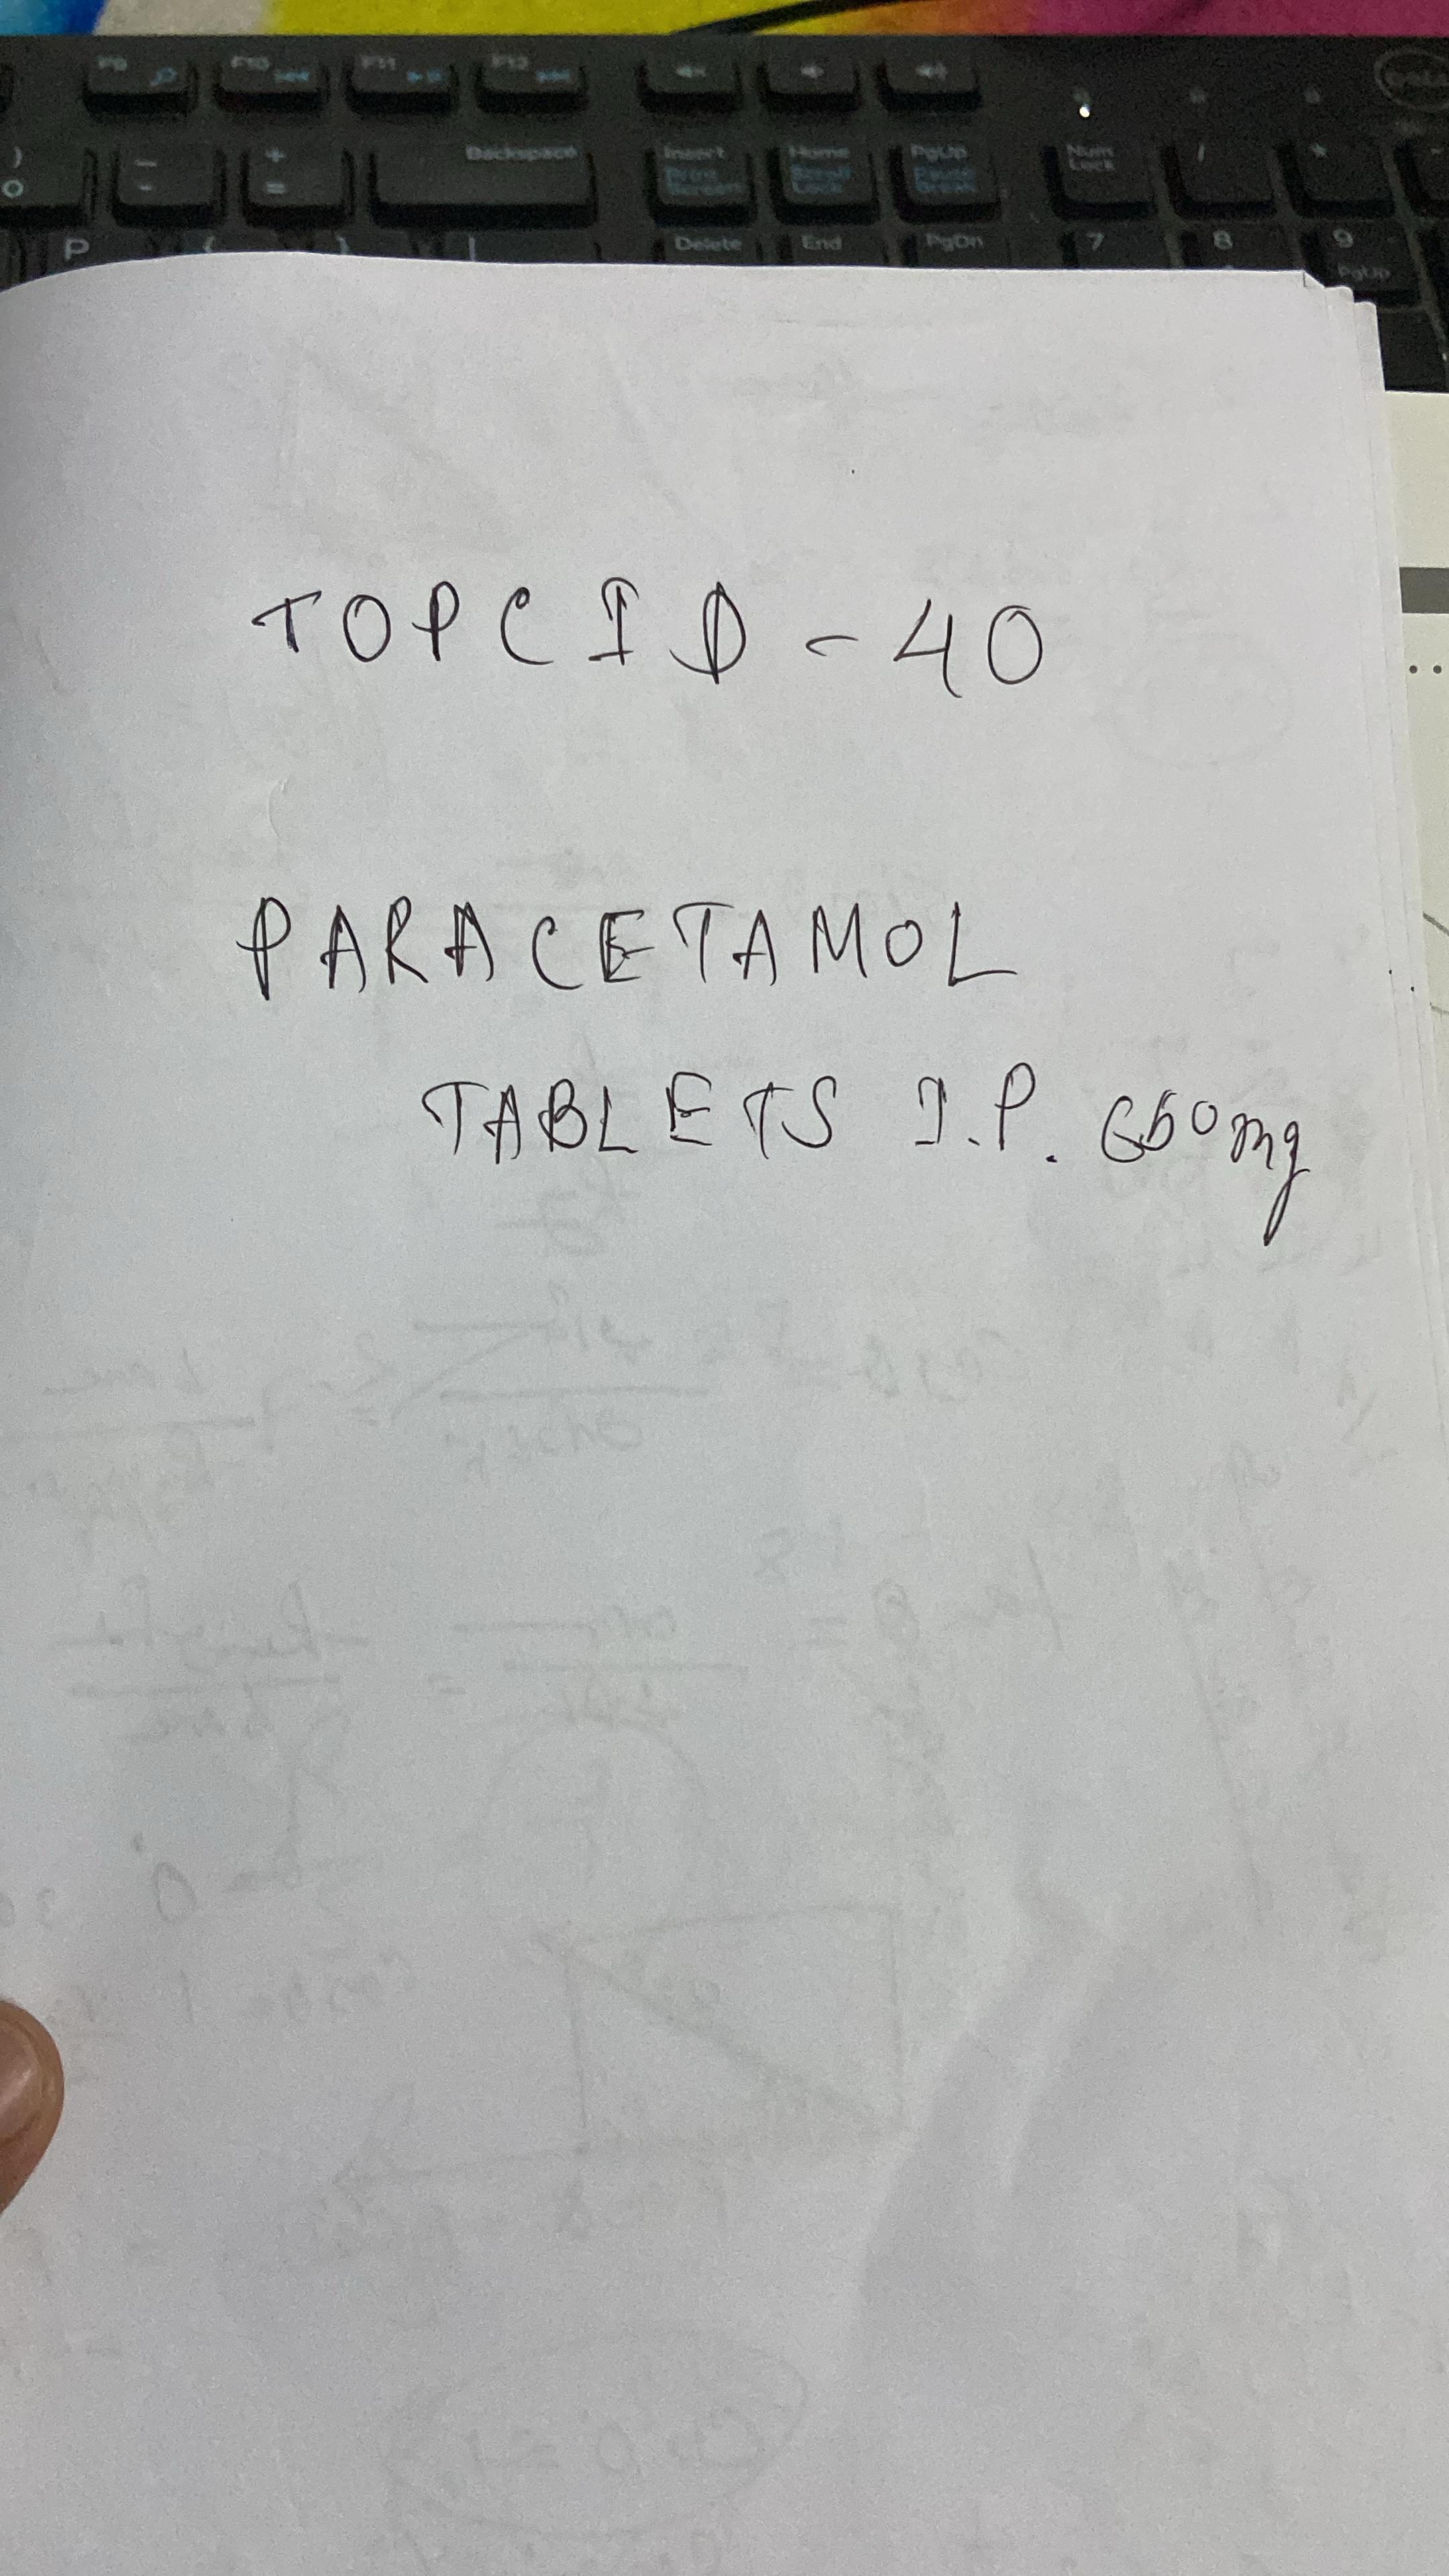 F9 F10 F11 F12
) 0 - + = Backspace Insert Print Screen Home Scroll Lock PgUp Pause Break Num Lock / *
P { } | Delete End PgDn 7 8 9 PgUp
TOPCID - 40
PARACETAMOL
TABLETS I.P. 650mg